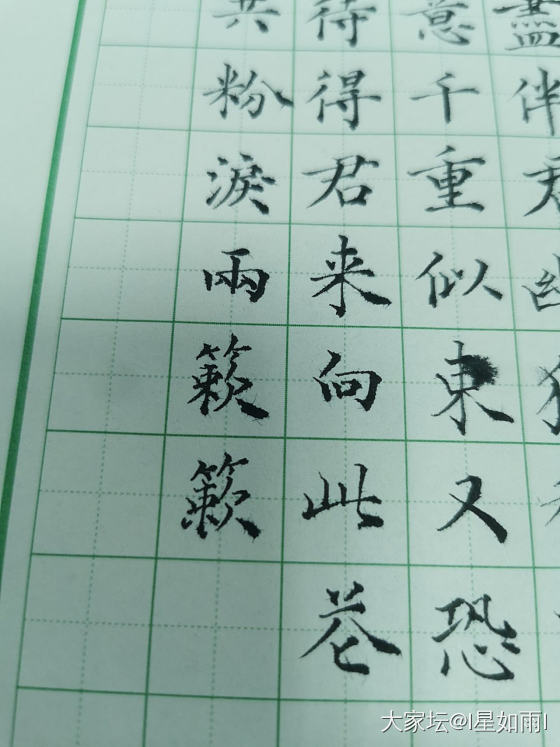 盡伴君幽獨
意千重似東又恐
待得君来向此花
共粉淚兩簌簌
大家坛@I星如雨I